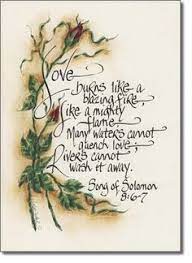 Love
burns like a
blazing fire,
like a mighty
flame.
Many waters cannot
quench love;
Rivers cannot
wash it away.
Song of Solomon
8:6-7